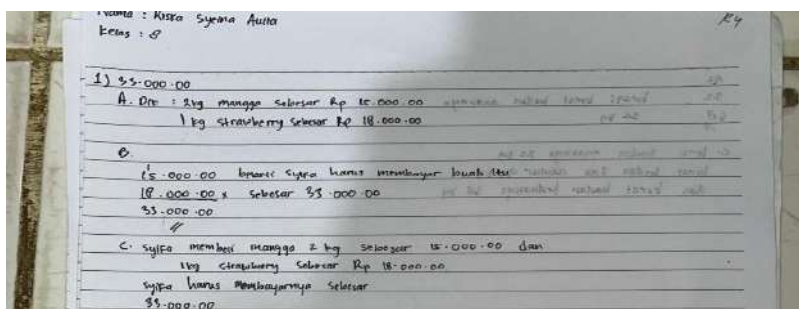 Nama : Riska Syeima Aulia
Kelas : 8
R4
1) 33.000.00
A. Dre : 2kg mangga sebesar Rp 15.000.00
1 kg strawberry sebesar Rp 18.000.00
B.
15.000.00 berarti syifa harus membayar buah itu
18.000.00 x sebesar 33.000.00
33.000.00
C. syifa membeli mangga 2 kg sebesar 15.000.00 dan
1kg strawberry sebesar Rp 18.000.00
syifa harus membayarnya sebesar
33.000.00